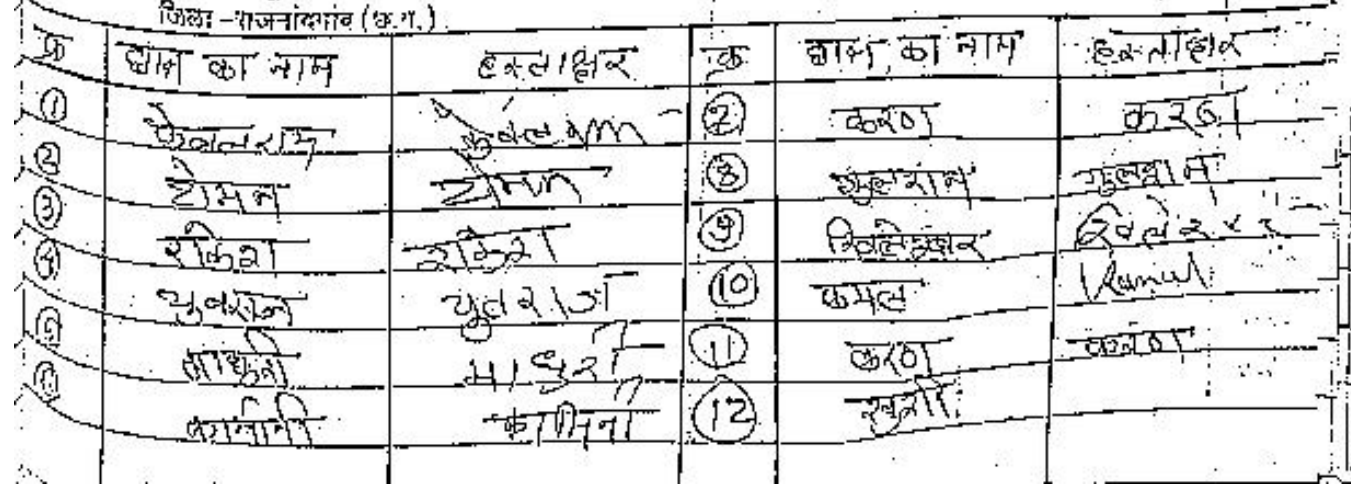 जिला - राजनांदगांव (छ.ग.)
क्र छात्र का नाम हस्ताक्षर क्र छात्र का नाम हस्ताक्षर
① केवलराम केवलराम ⑦ करण करण
② टोमन टोमन ⑧ गुलशन गुलशन
③ राकेश राकेश ⑨ खिलेश्वर
④ युवराज युवराज 10 कमल Kamal
माधुरी माधुरी 11 करण करण
कामिनी कामिनी 12